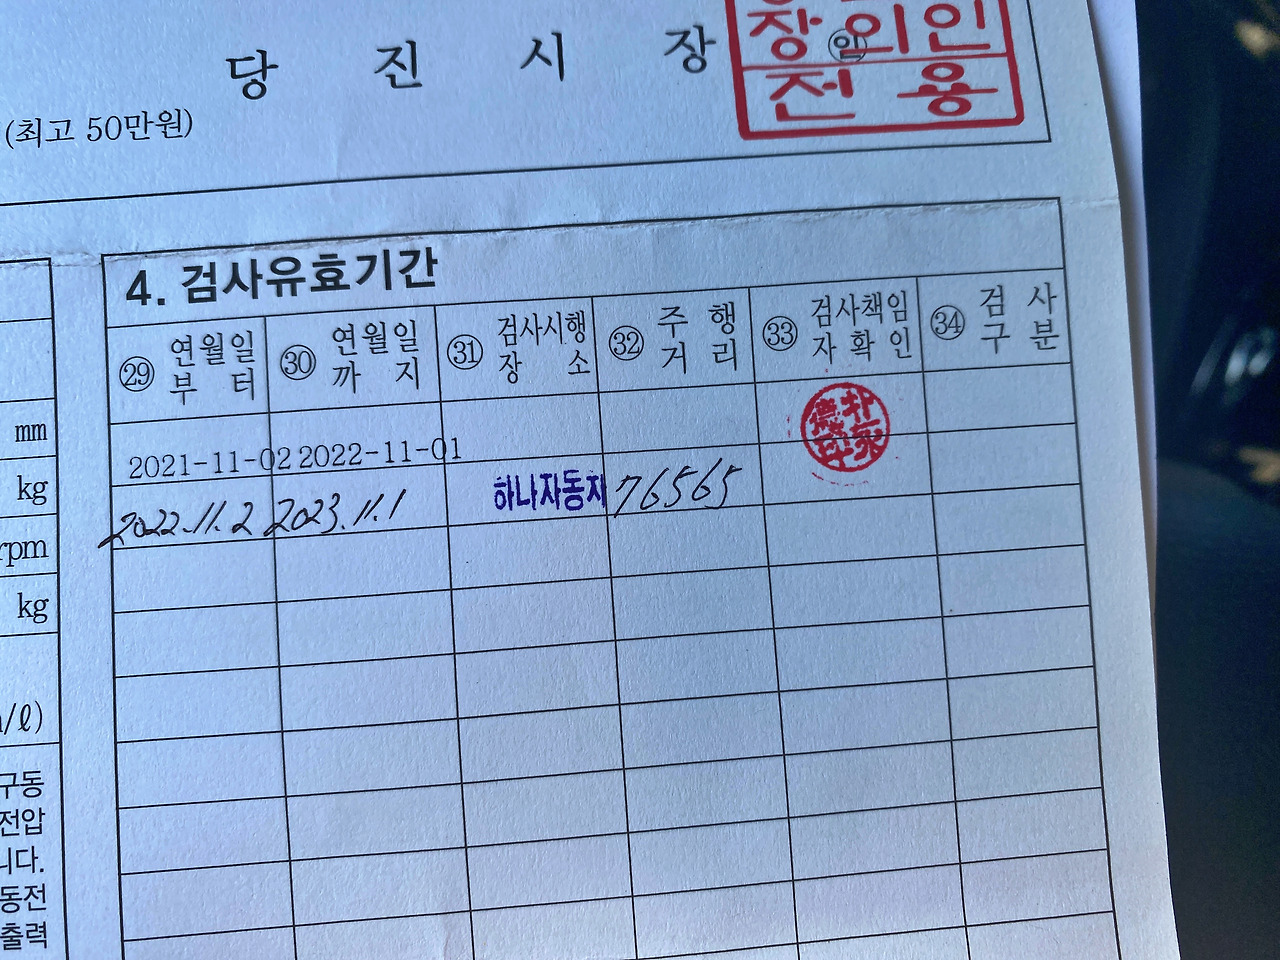 당 진 시 장 인
장의인
전용
(최고 50만원)
4. 검사유효기간
㉙ 연월일부터 ㉚ 연월일까지 ㉛ 검사시행장소 ㉜ 주행거리 ㉝ 검사책임자확인 ㉞ 검사구분
2021-11-02 2022-11-01
2022.11.2 2023.11.1 하나자동차 76565
mm
kg
rpm
kg
/ℓ)
구동
전압
니다.
동전
출력